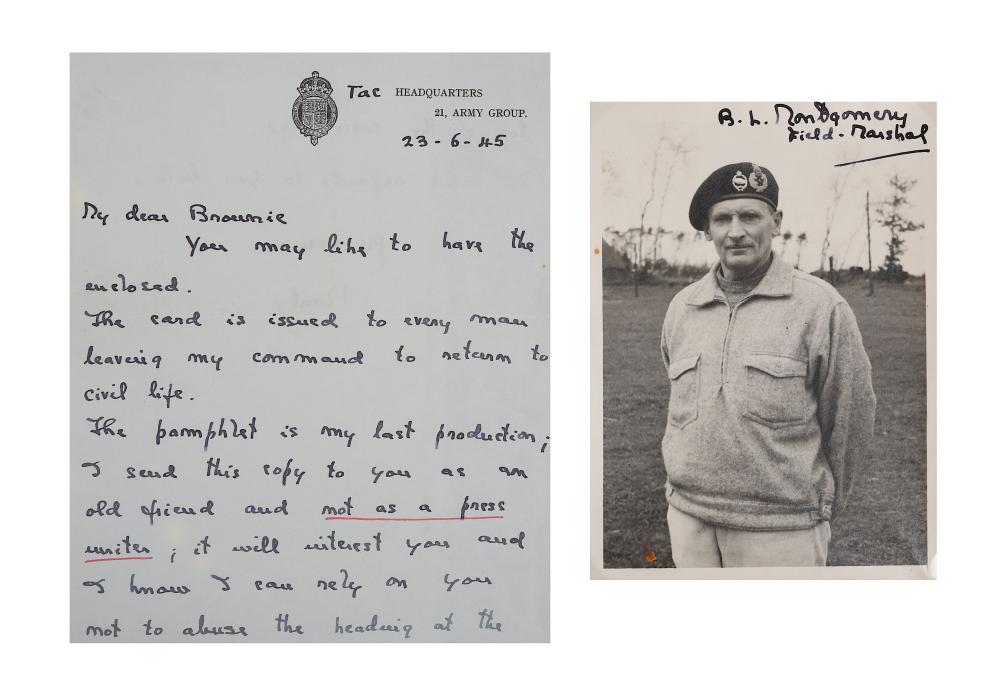 Tac HEADQUARTERS
21, ARMY GROUP.
23-6-45
My dear Brownie
You may like to have the
enclosed.
The card is issued to every man
leaving my command to return to
civil life.
The pamphlet is my last production;
I send this copy to you as an
old friend and not as a press
writer; it will interest you and
I know I can rely on you
not to abuse the heading at the
B. L. Montgomery
Field-Marshal